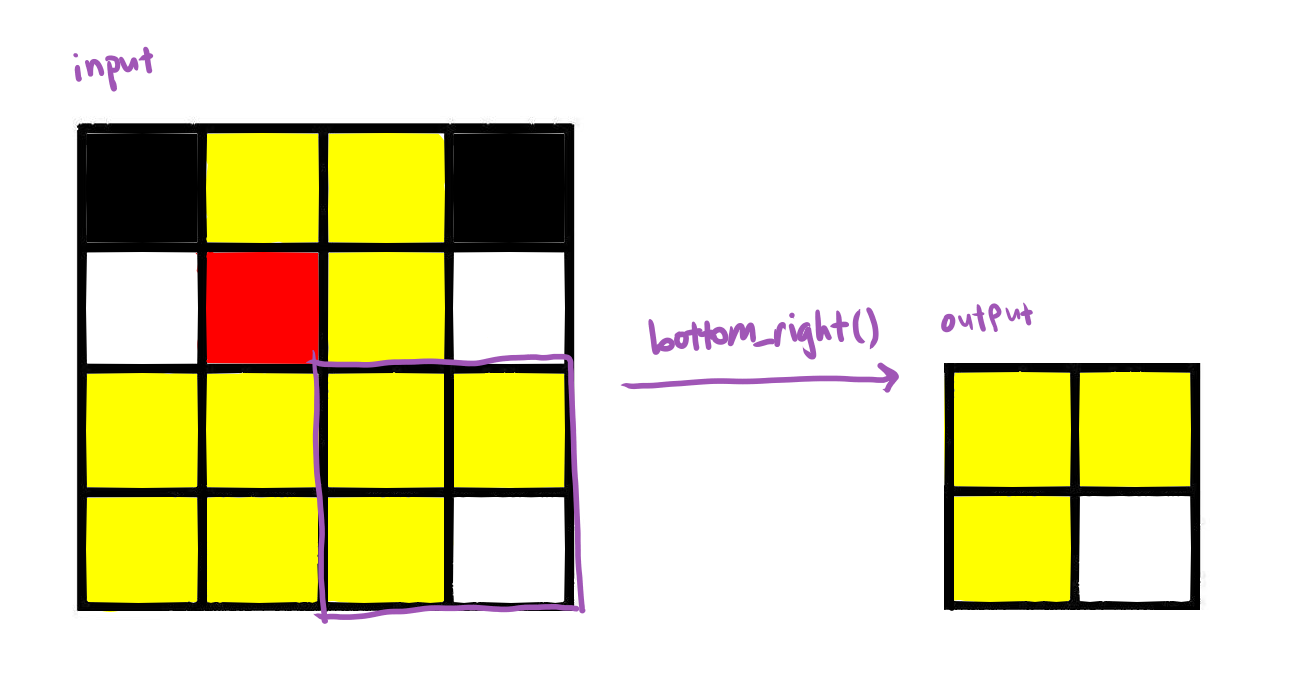 input
bottom_right()
output